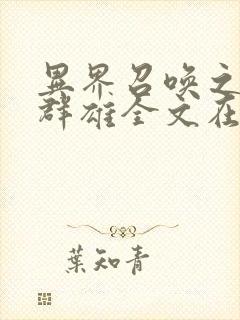 異界召喚之
群雄全文在
葉知青